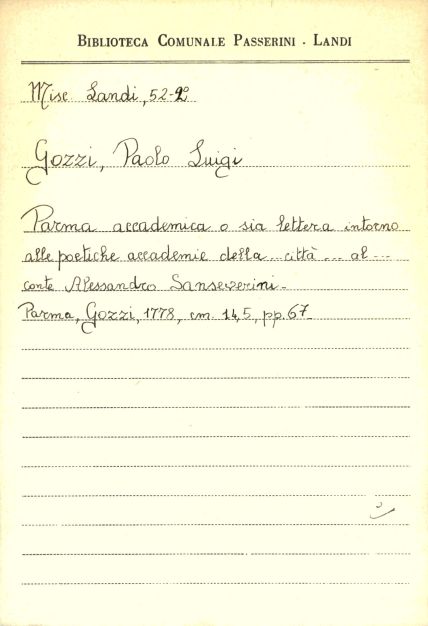 BIBLIOTECA COMUNALE PASSERINI - LANDI
Misc Landi, 52-2º
Gozzi, Paolo Luigi
Parma accademica o sia lettera intorno
alle poetiche accademie della ... città ... al ...
conte Alessandro Sanseverini.
Parma, Gozzi, 1778, cm. 14,5, pp. 67